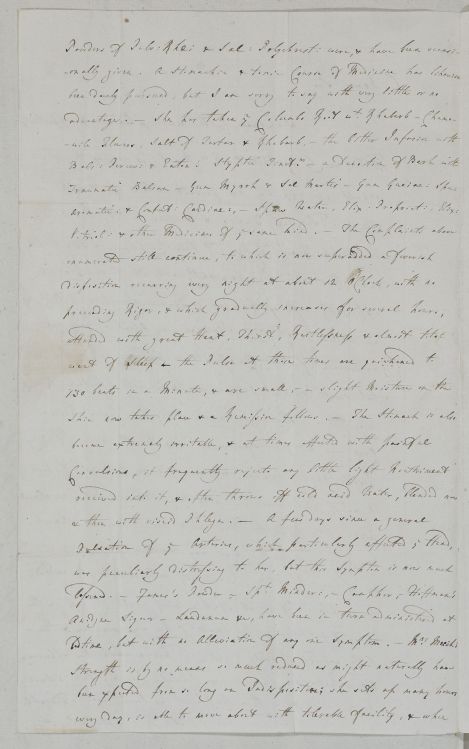 Powders of Pulv: Rhei & Sal: Polychrest: were, & have been occasi-
onally given. A Stomachic & tonic Course of Medicine has likewise
been duely pursued, but I am sorry to say with very little or no
advantage. — She has taken ye Columbo Root wt Rhubarb — Chamo-
mile Flowers, Salt of Tartar & Rhubarb, — the bitter Infusion with
Bals: Peruv: & Styptic Tinct: — a Decoction of Bark with
Traumatic Balsam — Gum Myrrh & Sal Martis — Gum Guaiac:
aromatic: & Confect: Cardiac:, — Water, Elix: Propriet: Elix:
Vitriol: & other Medicines of ye same kind. — The Complaints above
enumerated still continue, to which is now superadded a feverish
disposition recurring every night at about 12 O'Clock, with no
preceeding Rigor, & which gradually increases for several hours,
attended with great Heat, Thirst, Restlessness & almost total
want of Sleep — the Pulse at these times are quickened to
130 beats in a Minute, & are small, — a slight Moisture on the
Skin now takes place & a Remission follows. — The Stomach is also
become extremely irritable, & at times affected with painful
Convulsions, it frequently rejects any little light Nourishment
received into it, & often throws off cold Water, blended now
& then with viscid Phlegm. — A few days since a general
Pulsation of ye Arteries, which particularly affected ye Head,
was peculiarly distressing to her, but this Symptom is now much
lessened. — James's Powder — Spt Minderi:, — Camphor, Hoffman's
Anodyne Liquor — Laudanum &c, have been in turn administered at
Bedtime, but with no Alleviation of any one Symptom. — Mrs
Strength is by no means so much reduced as might naturally have
been expected from so long an Indisposition; she sits up many hours
every day, is able to move about with tolerable facility, & when